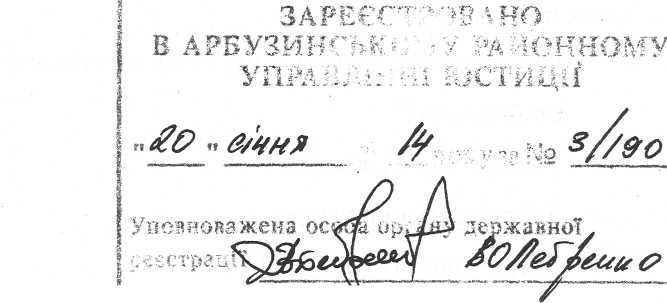 ЗАРЕЄСТРОВАНО
В АРБУЗИНСЬКОМУ РАЙОННОМУ
УПРАВЛІННІ ЮСТИЦІЇ
"20" січня 14 року за № 3/190
Уповноважена особа органу державної
реєстрації В О